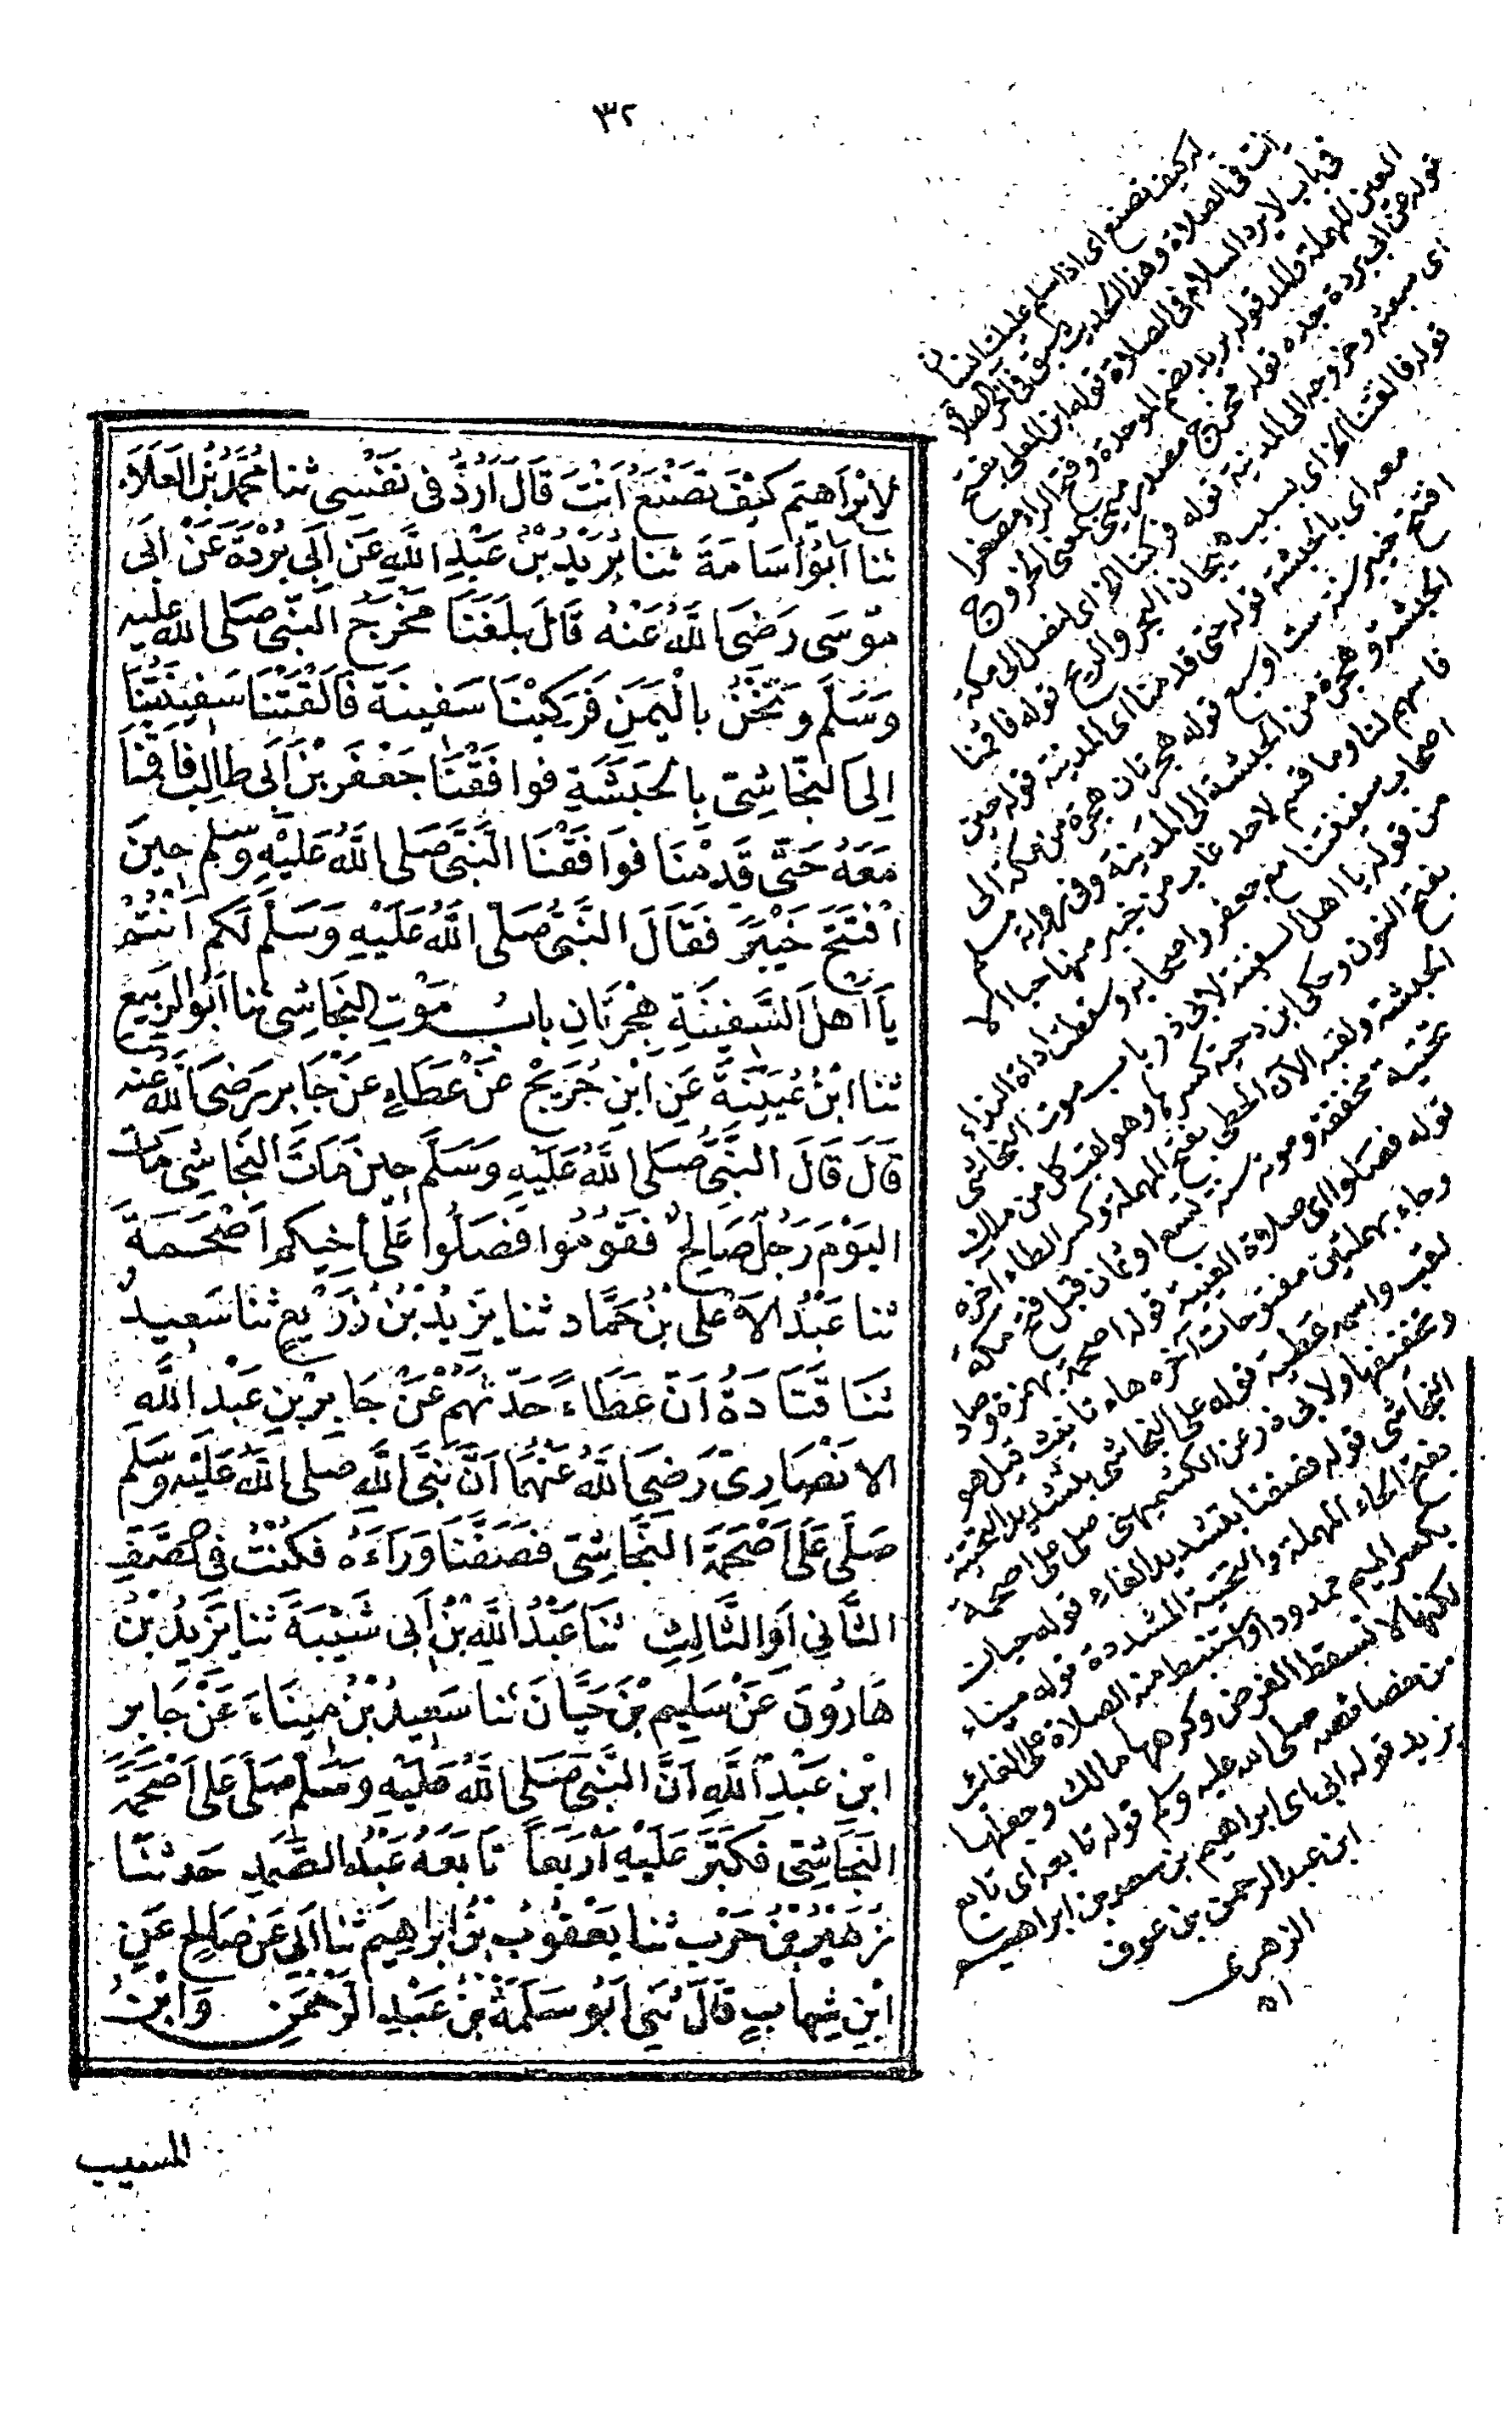 ٣٢
لِابْرَاهِيمَ كَيْفَ تَصْنَعُ اَنْتَ قَالَ اَرُدُّ فِى نَفْسِى ثنا مُحَمَّدُ بْنُ الْعَلَاءِ
ثَنَا اَبُو اُسَامَةَ ثنا بُرَيْدُ بْنُ عَبْدِ اللّٰهِ عَنْ اَبِى بُرْدَةَ عَنْ اَبِى
مُوسَى رَضِىَ اللّٰهُ عَنْهُ قَالَ بَلَغَنَا مَخْرَجُ النَّبِىِّ صَلَّى اللّٰهُ عَلَيْهِ
وَسَلَّمَ وَنَحْنُ بِالْيَمَنِ فَرَكِبْنَا سَفِينَةً فَاَلْقَتْنَا سَفِينَتُنَا
اِلَى النَّجَاشِىِّ بِالْحَبَشَةِ فَوَافَقْنَا جَعْفَرَ بْنَ اَبِى طَالِبٍ فَاَقَمْنَا
مَعَهُ حَتَّى قَدِمْنَا فَوَافَقْنَا النَّبِىَّ صَلَّى اللّٰهُ عَلَيْهِ وَسَلَّمَ حِينَ
افْتَتَحَ خَيْبَرَ فَقَالَ النَّبِىُّ صَلَّى اللّٰهُ عَلَيْهِ وَسَلَّمَ لَكُمْ اَنْتُمْ
يَا اَهْلَ السَّفِينَةِ هِجْرَتَانِ بَابُ مَوْتِ النَّجَاشِى ثنا اَبُو الرَّبِيعِ
ثنا ابْنُ عُيَيْنَةَ عَنِ ابْنِ جُرَيْجٍ عَنْ عَطَاءٍ عَنْ جَابِرٍ رَضِىَ اللّٰهُ عَنْهُ
قَالَ قَالَ النَّبِىُّ صَلَّى اللّٰهُ عَلَيْهِ وَسَلَّمَ حِينَ مَاتَ النَّجَاشِى مَاتَ
الْيَوْمَ رَجُلٌ صَالِحٌ فَقُومُوا فَصَلُّوا عَلَى اَخِيكُمْ اَصْحَمَةَ
ثنا عَبْدُ الْاَعْلَى بْنُ حَمَّاد ثنا يَزِيدُ بْنُ زُرَيْعٍ ثنا سَعِيدٌ
ثَنَا قَتَادَةُ اَنَّ عَطَاءً حَدَّثَهُمْ عَنْ جَابِرِ بْنِ عَبْدِ اللّٰهِ
الْاَنْصَارِىِّ رَضِىَ اللّٰهُ عَنْهُمَا اَنَّ نَبِىَّ اللّٰهِ صَلَّى اللّٰهُ عَلَيْهِ وَسَلَّمَ
صَلَّى عَلَى اَصْحَمَةَ النَّجَاشِىِّ فَصَفَّنَا وَرَاءَهُ فَكُنْتُ فِى الصَّفِّ
الثَّانِى اَوِ الثَّالِثِ ثنا عَبْدُ اللّٰهِ بْنُ اَبِى شَيْبَةَ ثنا يَزِيدُ بْنُ
هَارُونَ عَنْ سَلِيمِ بْنِ حَيَّانَ ثنا سَعِيدُ بْنُ مِينَاءَ عَنْ جَابِرِ
ابْنِ عَبْدِ اللّٰهِ اَنَّ النَّبِىَّ صَلَّى اللّٰهُ عَلَيْهِ وَسَلَّمَ صَلَّى عَلَى اَصْحَمَةَ
النَّجَاشِىِّ فَكَبَّرَ عَلَيْهِ اَرْبَعًا تَابَعَهُ عَبْدُ الصَّمَدِ حَدَّثَنَا
زُهَيْرُ بْنُ حَرْبٍ ثنا يَعْقُوبُ بْنُ اِبْرَاهِيمَ ثنا اَبِى عَنْ صَالِحٍ عَنِ
ابْنِ شِهَابٍ قَالَ ثَنِى اَبُو سَلَمَةَ بْنُ عَبْدِ الرَّحْمٰنِ وَابْنُ
المسيب
كيف تصنع اى اذا سلم عليك انسان
انت فى الصلاة وهذا الحديث سبق فى آخر الصلاة
فى باب لا يرد السلام فى الصلاة قوله ابن العلاء بفتح
العين المهملة والمد قوله بريد بضم الموحدة وفتح الراء مصغرا
قوله عن ابى بردة جده قوله مخرج مصدر ميمى بمعنى الخروج
اى مبعثه وخروجه الى المدينة قوله فركبنا الخ اى لنصل الى مكة
قوله فالقتنا الخ اى بسبب هيجان البحر والريح قوله فاقمنا
معه اى بالحبشة قوله حتى قدمنا اى المدينة قوله حين
افتتح خيبر سنة ست او سبع قوله هجرتان هجرة من مكة الى
الحبشة وهجرة من الحبشة الى المدينة وفى رواية مسلم
فاسهم لنا وما قسم لاحد غاب من خيبر منها حبا الا
اصحاب سفينتنا مع جعفر واصحابه وسقطت اداة النداء
من قوله يا اهل السفينة لابى ذر باب موت النجاشى
بفتح النون وحكى ابن دحية كسرها وهو لقب كل من ملك
الحبشة ولقبه الآن الحطى بفتح المهملة وكسر الطاء آخره
تحتية مخففة وموته سنة تسع او ثمان قبل فتح مكة
قوله فصلوا اى صلاة الغيبة قوله اصحمة بهمزة وصاد
وحاء بمهملتين مفتوحات آخره هاء تانيث قيل هو
لقب واسمه عطية قوله على النجاشى بتشديد التحتية
وتخفيفها ولابى ذر عن الكشميهنى صلى على اصحمة
النجاشى قوله فصفنا بتشديد الفاء قوله حيان
بفتح الحاء المهملة والتحتية المشددة قوله ميناء
بكسر الميم ممدودا واستنبط منه الصلاة على الغائب
لكنها لا تسقط الفرض وكرهها مالك وجعلها
من خصائصه صلى الله عليه وسلم قوله تابعه اى تابع
يزيد قوله ابى اى ابراهيم بن سعد بن ابراهيم
ابن عبد الرحمن بن عوف
الزهرى
اه